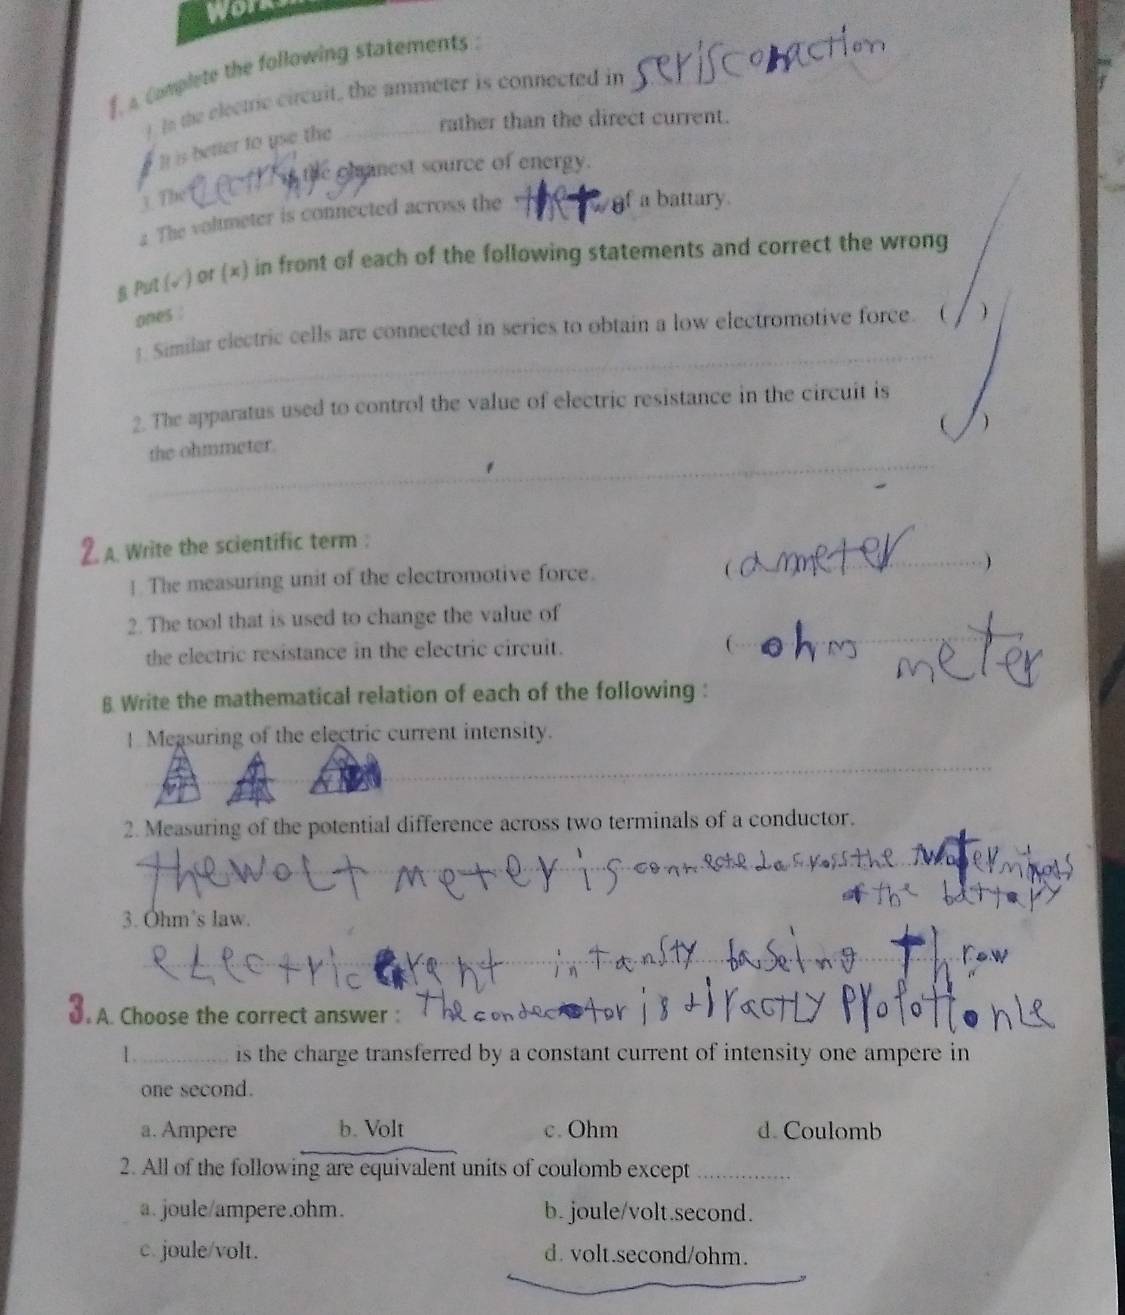 1. A. Complete the following statements :
1. In the electric circuit, the ammeter is connected in seriscoraction
2. It is better to use the ............ rather than the direct current.
3. The is the cleanest source of energy.
4. The voltmeter is connected across the the tw of a battary.
B. Put (✓) or (×) in front of each of the following statements and correct the wrong
ones :
1. Similar electric cells are connected in series to obtain a low electromotive force. ( / )
2. The apparatus used to control the value of electric resistance in the circuit is
the ohmmeter. ( ✓ )
2. A. Write the scientific term :
1. The measuring unit of the electromotive force. (ameter)
2. The tool that is used to change the value of
the electric resistance in the electric circuit. (ohm meter
B. Write the mathematical relation of each of the following :
1. Measuring of the electric current intensity.
2. Measuring of the potential difference across two terminals of a conductor.
the wolt meter is across the
of the battary
3. Ohm's law.
eLectric intansty throw
the is Ptopottionle
3. A. Choose the correct answer :
1. ............ is the charge transferred by a constant current of intensity one ampere in
one second.
a. Ampere b. Volt c. Ohm d. Coulomb
2. All of the following are equivalent units of coulomb except ............
a. joule/ampere.ohm. b. joule/volt.second.
c. joule/volt. d. volt.second/ohm.